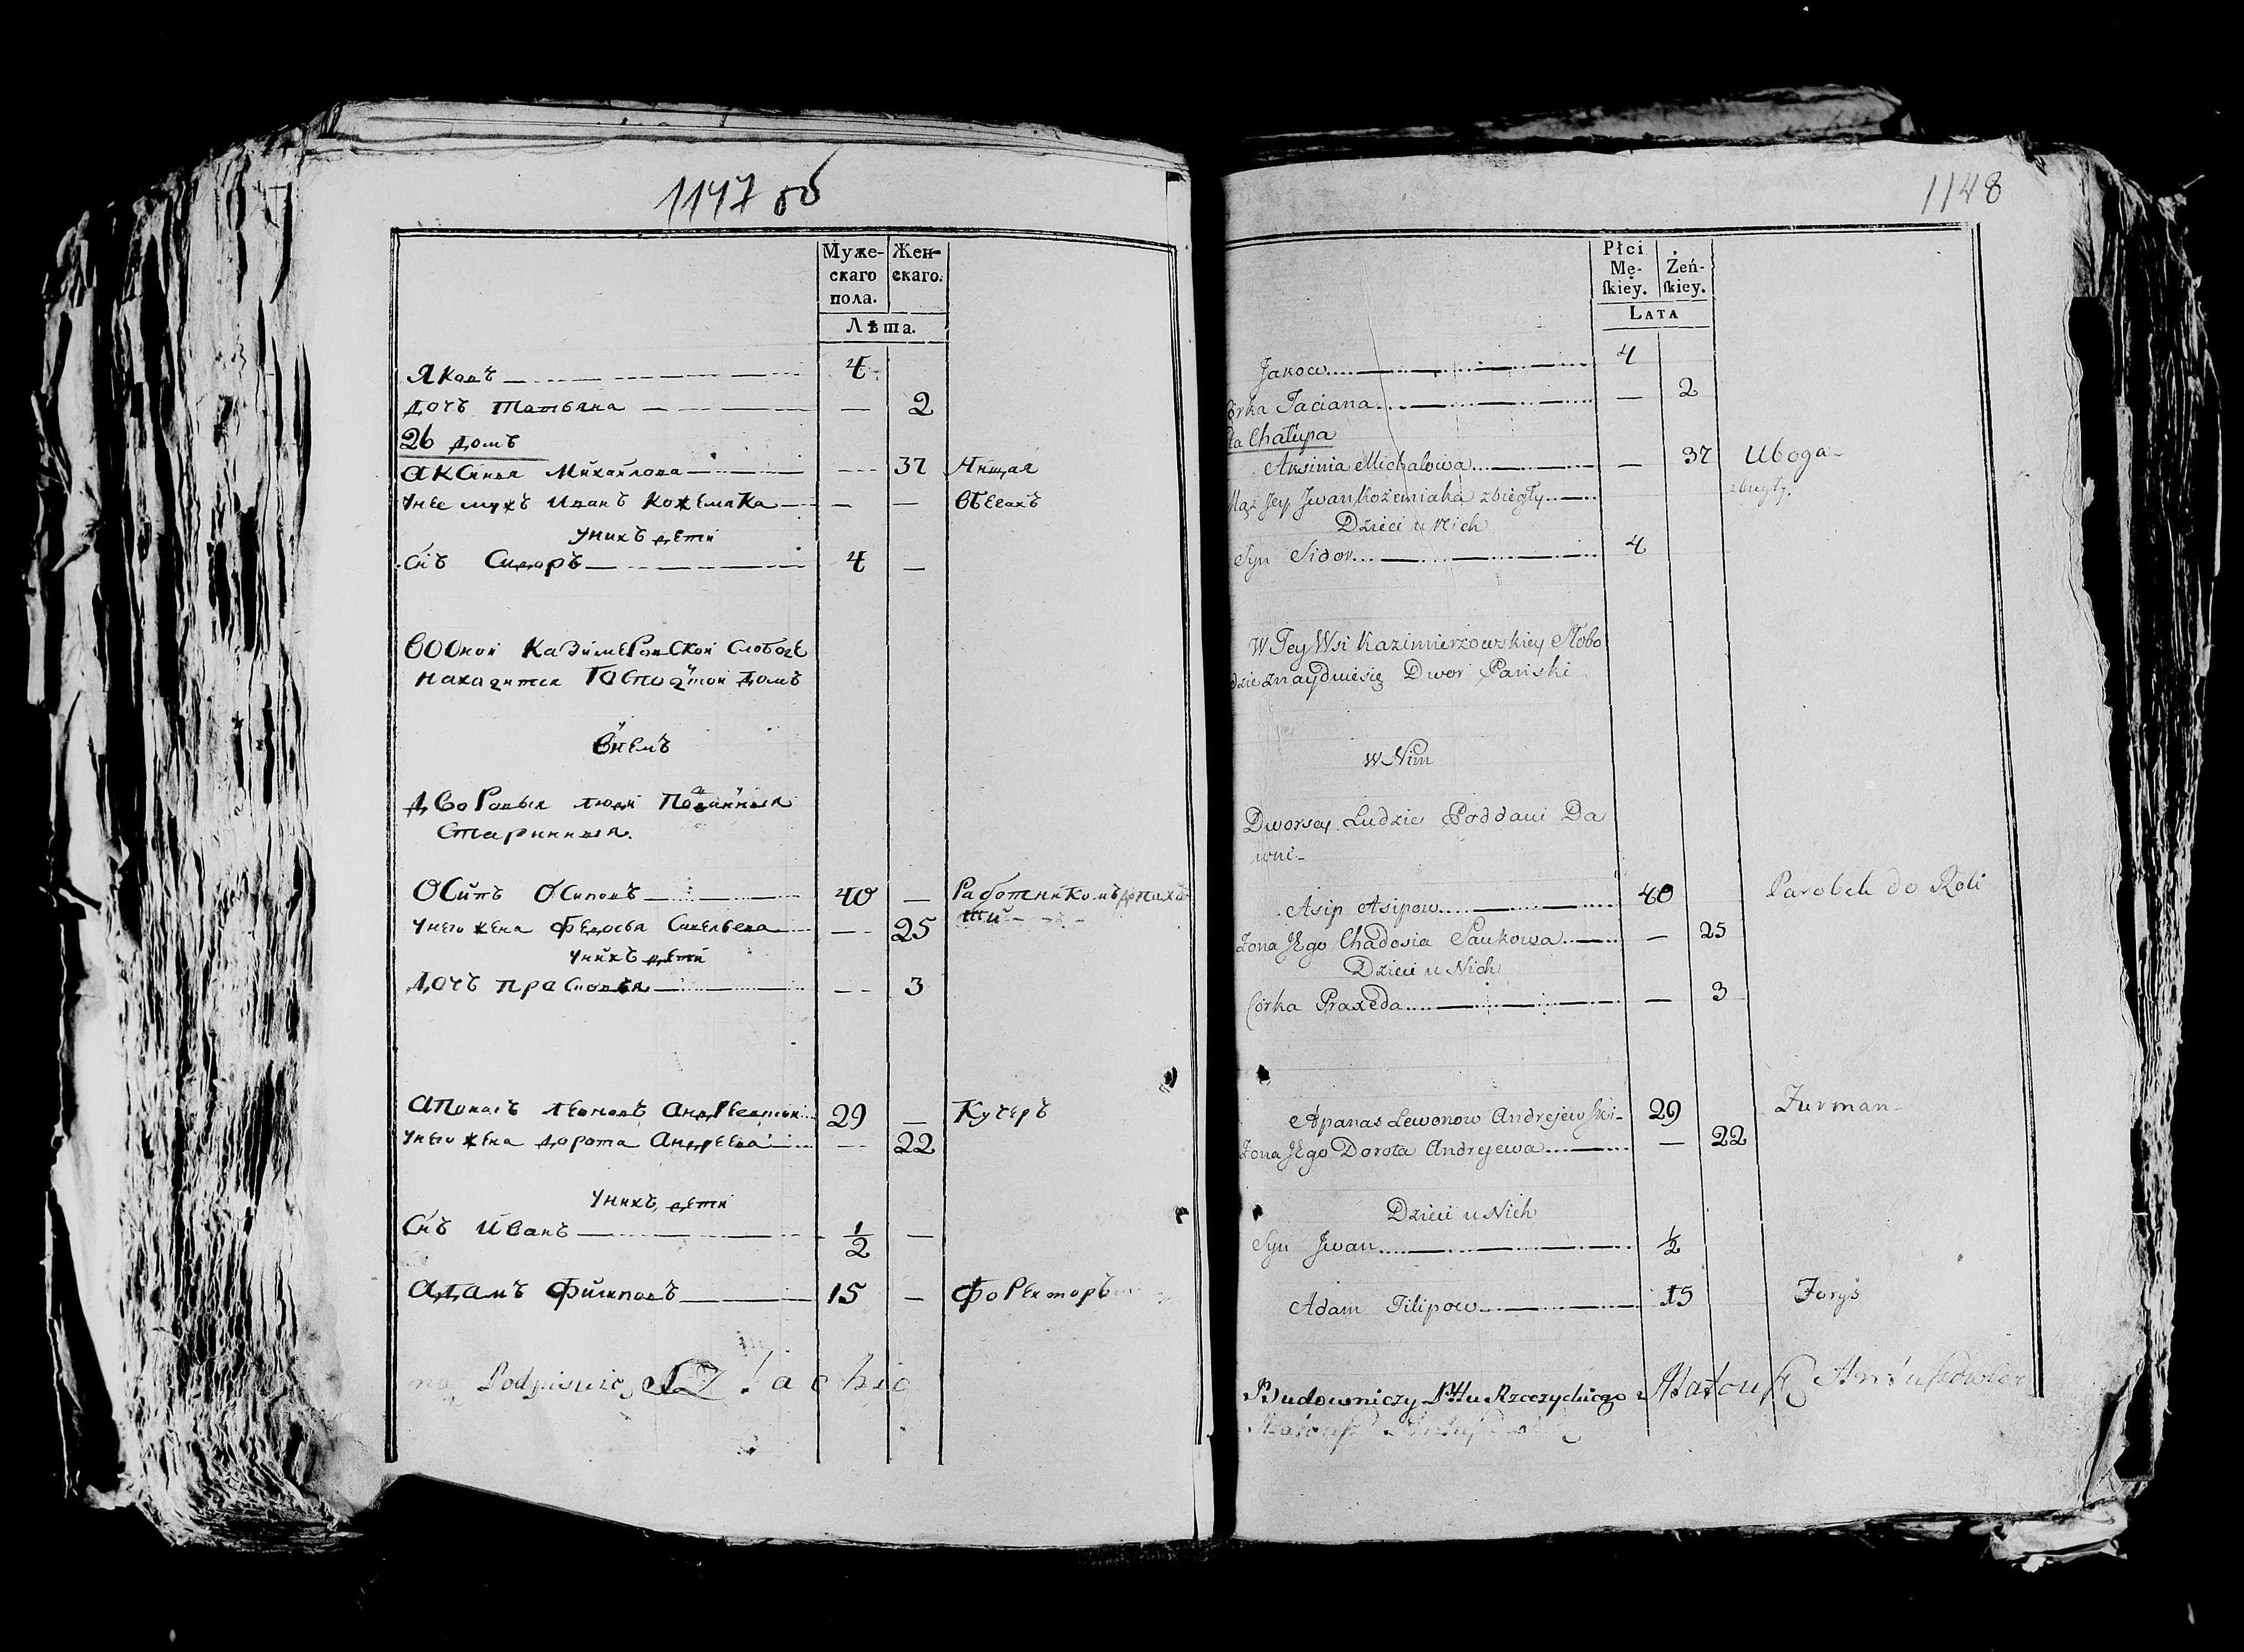 1147 об
Муже-
скаго
пола.
Жен-
скаго.
Лѣта.
Яковъ 4
дочъ татьяна — 2
26 домъ
аксинья Михайлова — 37 Нищая
унее мужъ иванъ кожемяка — — вбегахъ
унихъ дети
Снъ Сидоръ 4 —
вооной казимеровской слободе
находится господской домъ
внемъ
дворовыя люди подданныя
старинныя.
Осипъ Осиповъ 40 — Работникомъ
унего жена федосья — 25
унихъ дети
дочъ прасковья — 3
апонасъ леоновъ 29 — Кучеръ
унего жена дорота андреева — 22
унихъ дети
Снъ иванъ 1/2 —
адамъ филиповъ 15 — форекторъ
na Podpisuie
1148
Płci
Mę-
ſkiey.
Żeń-
ſkiey.
LATA
Jakow 4
órka Taciana — 2
ta Chałupa
Aksinia Michalowa — 37 Uboga
Mąż Jey Jwan Kożemiaka zbiegły zbiegły.
Dzieci u Nich
Syn Sidor 4
W Tey Wsi Kazimierzowskiey Słobo
dzie znayduiesię Dwor Pański
w Nim
Dworscy Ludzie Poddani Da
wni
Asip Asipow 40 Parobek do Roli
Żona JEgo Chadosia Saukowa — 25
Dzieci u Nich
Córka Praxeda — 3
Apanas Lewonow Andrejewſki 29 Furman
Żona JEgo Dorota Andrejewa — 22
Dzieci u Nich
Syn Jwan 1/2
Adam Filipow 15 Foryś
Budowniczy Pttu Rzeczyckiego